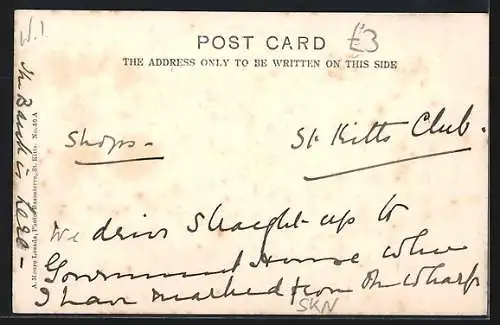 W.I.
£3
POST CARD
THE ADDRESS ONLY TO BE WRITTEN ON THIS SIDE
Shops -
St Kitts Club.
We drive straight up to
Government House when
I have marked from the Wharf
SKN
The Band is
A. Moure Losada, Photo, Basseterre, St. Kitts. No. 50 A